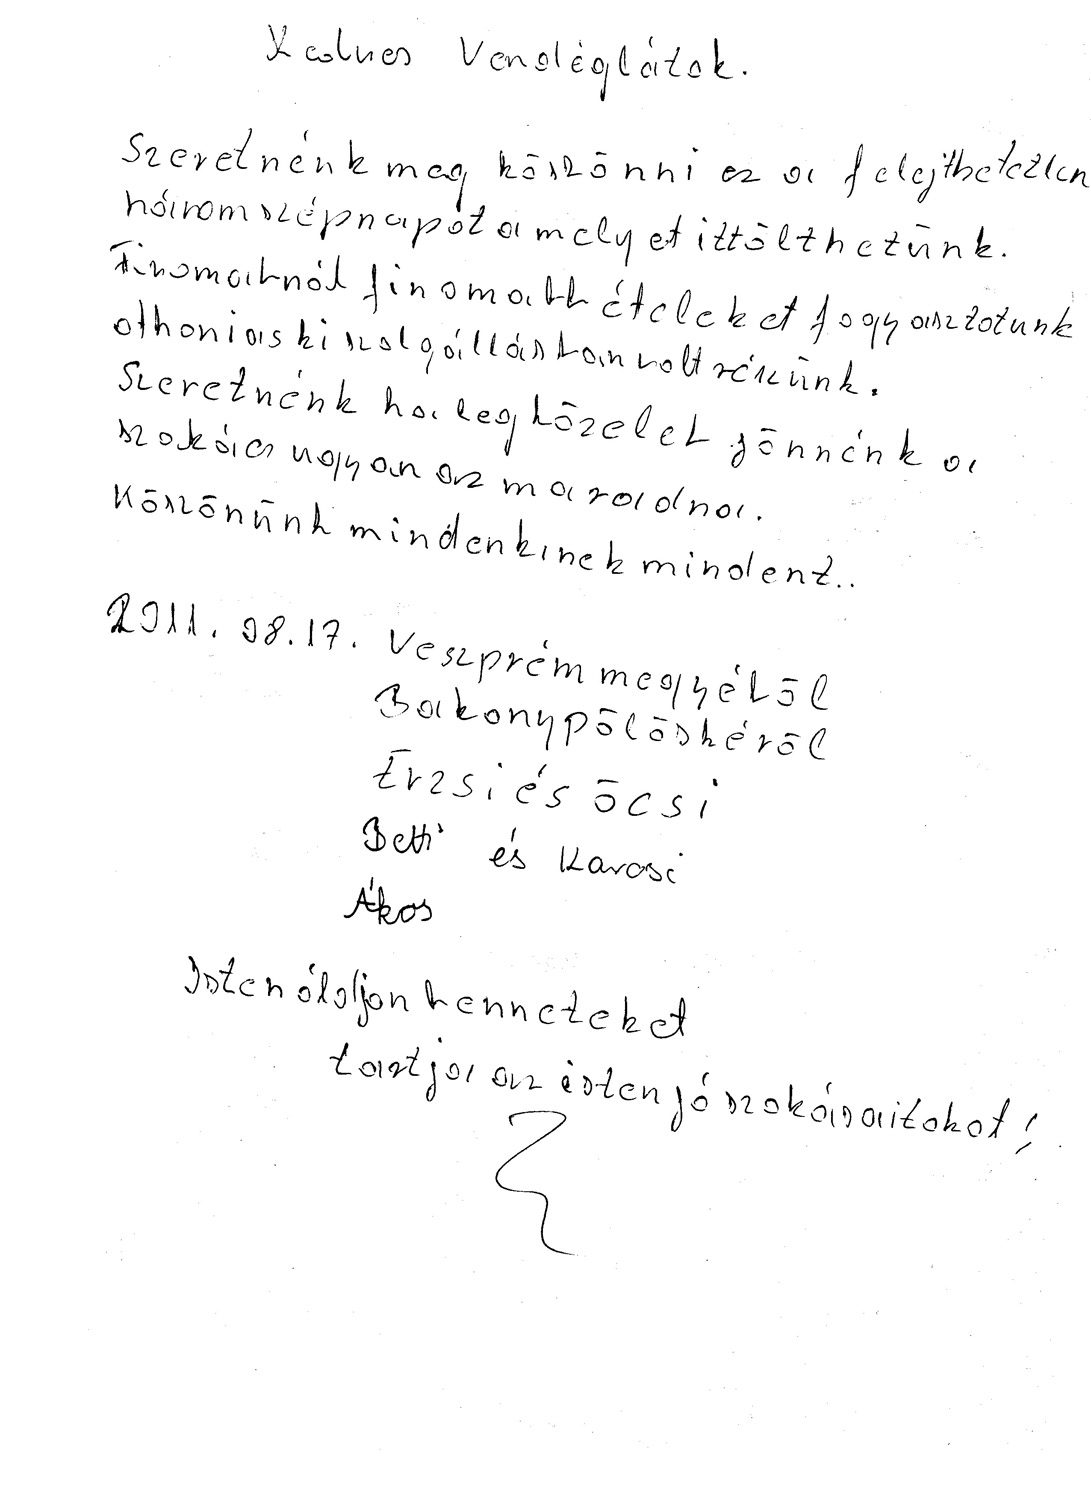 Kedves Vendéglátok.
Szeretnénk meg köszönni ez a felejthetetlen
három szép napot amelyet itt tölthetünk.
Finomabnál finomabb ételeket fogyasztotunk
othonias kiszolgálásban volt részünk.
Szeretnénk ha legközeleb jönnénk a
szokás ugyan az maradna.
Köszönünk mindenkinek mindent..
2011.08.17. Veszprém megyéböl
Bakonypölöskéröl
Erzsi és öcsi
Betti és Karcsi
Ákos
Isten áldjon benneteket
tartja az isten jó szokásaitokat!